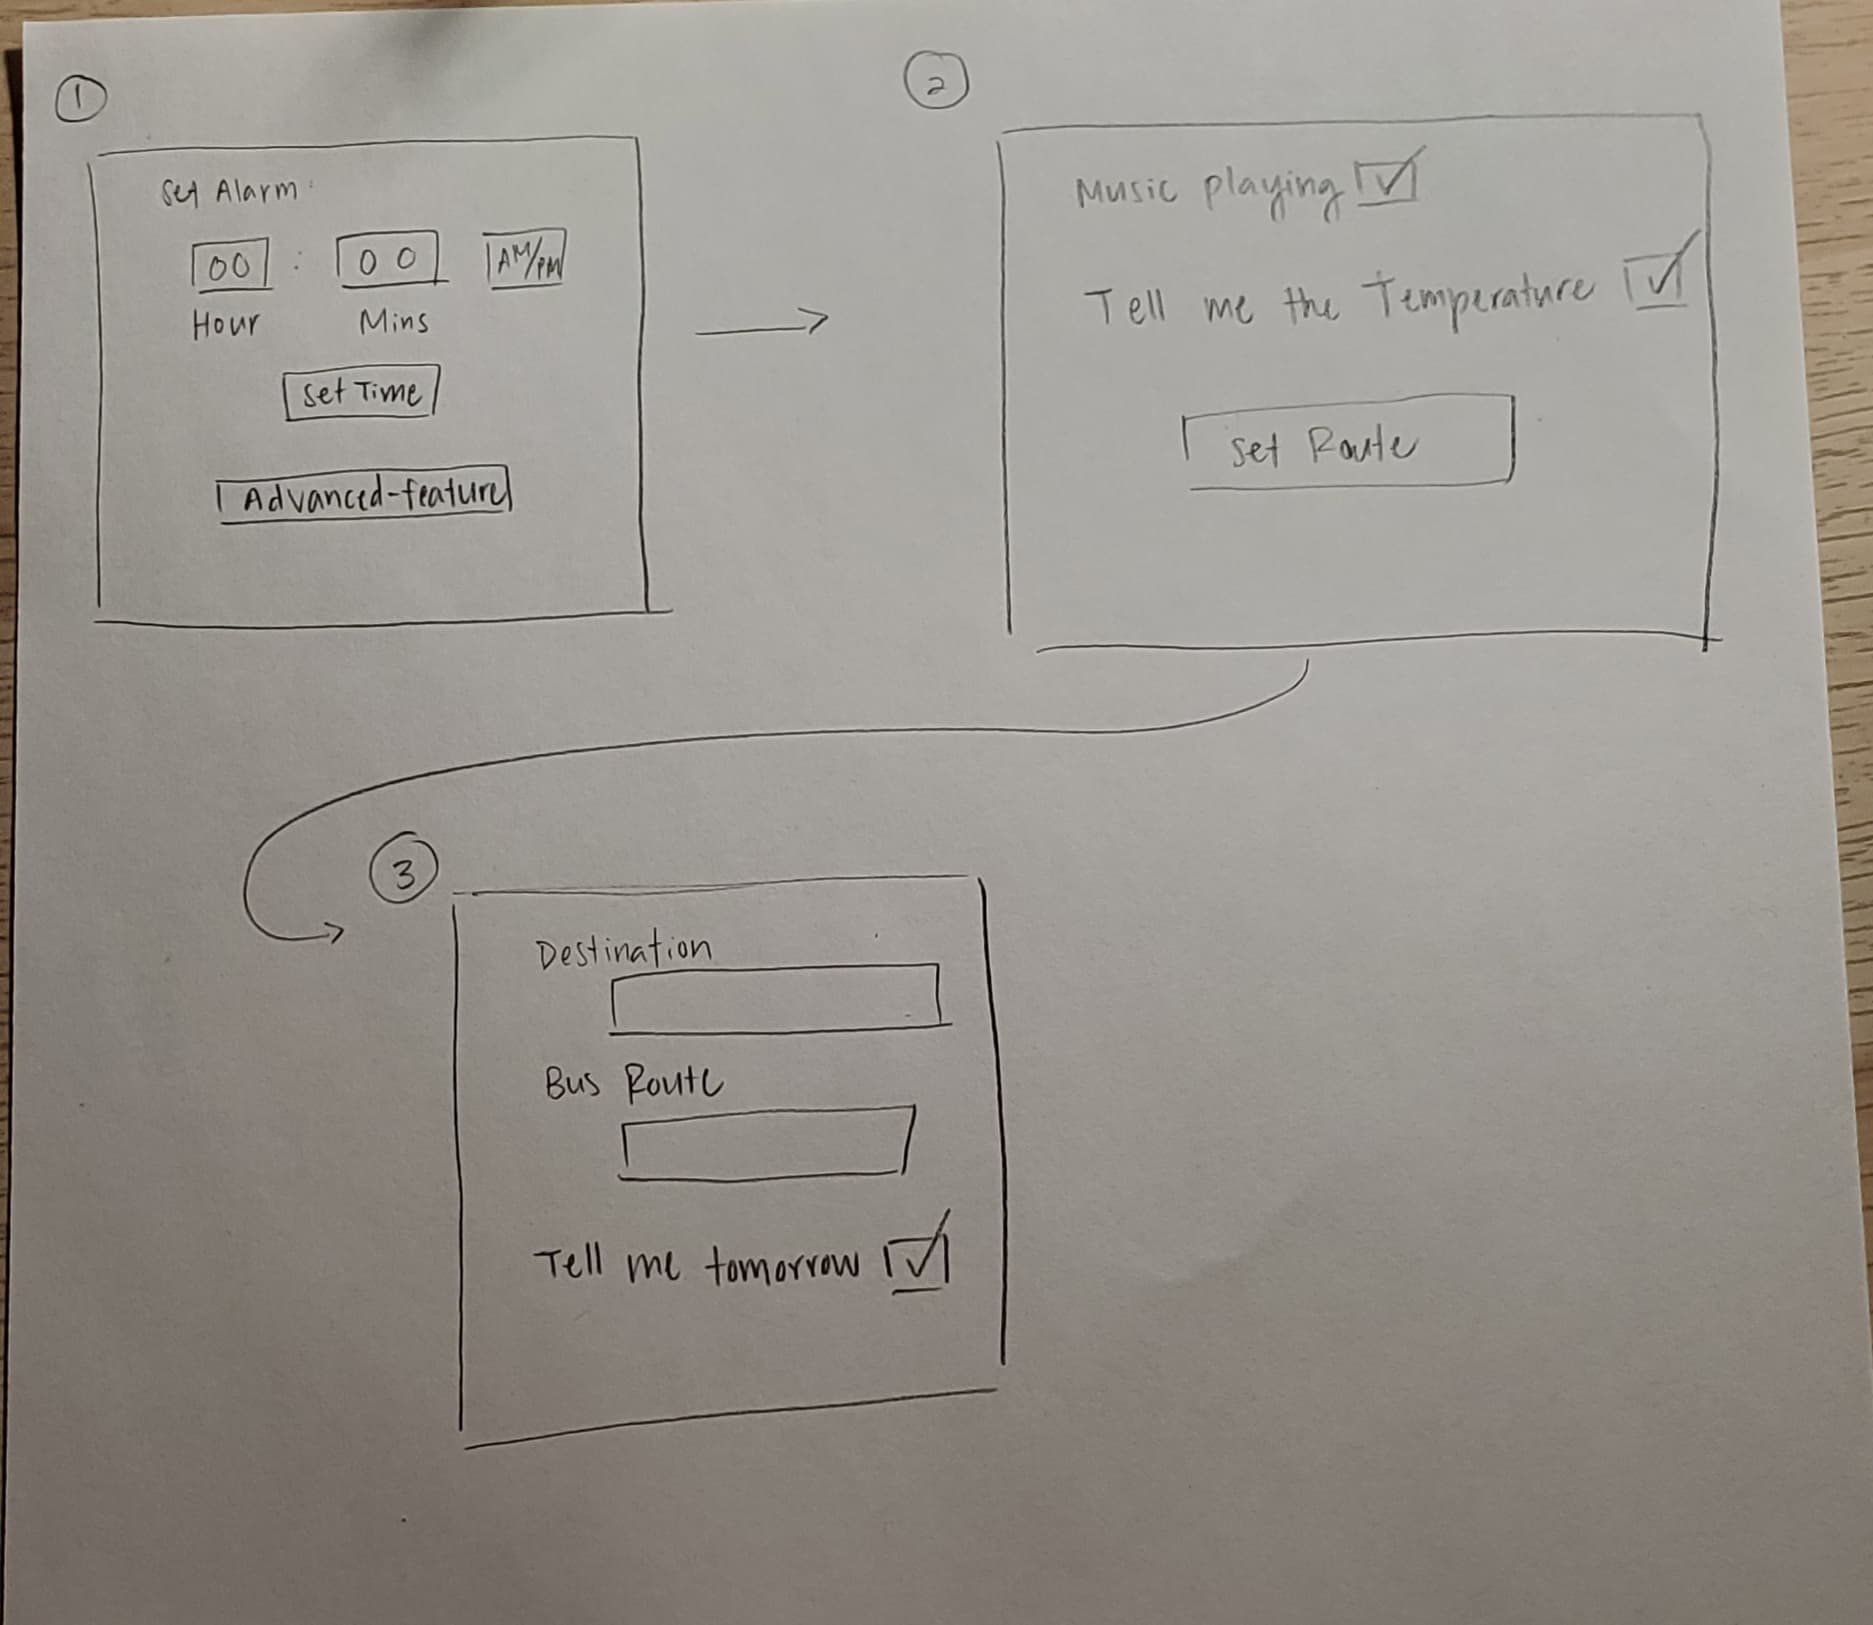 1
Set Alarm:
00 : 00 AM/PM
Hour Mins
Set Time
Advanced-feature
2
Music playing
Tell me the Temperature
Set Route
3
Destination
Bus Route
Tell me tomorrow